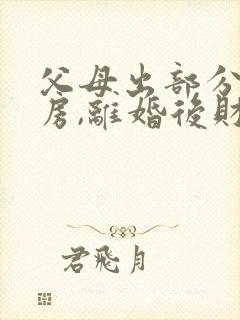 父母出部分
房,離婚後財
君飛月